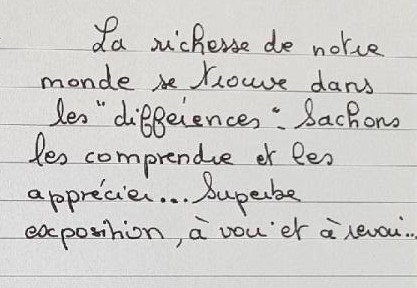 La richesse de notre
monde se trouve dans
les "différences". Sachons
les comprendre et les
apprécier... Superbe
exposition, à voir et à revoir...